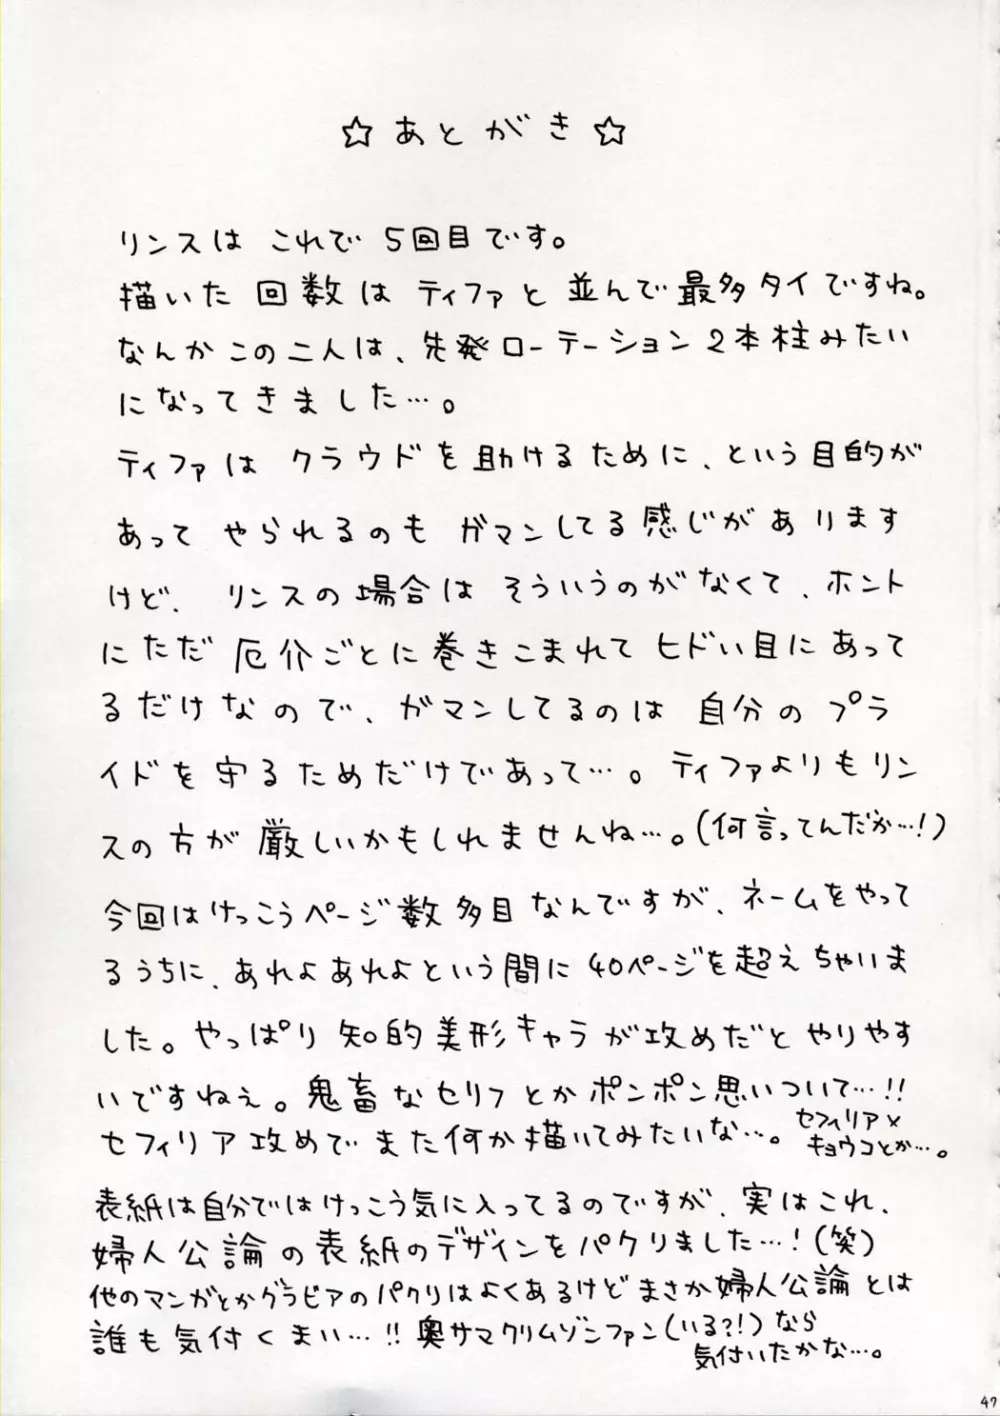 ☆ あとがき ☆
リンスは これで 5回目です。
描いた 回数は ティファと 並んで 最多タイですね。
なんかこの二人は、先発ローテーション2本柱みたい
になってきました…。
ティファは クラウドを助けるために、という目的が
あって やられるのも ガマンしてる感じがあります
けど、 リンスの場合は そういうのがなくて、ホント
にただ 厄介ごとに巻きこまれて ヒドい目にあって
るだけなので、ガマンしてるのは 自分の プラ
イドを守るためだけであって…。ティファよりもリン
スの方が 厳しいかもしれませんね…。(何言ってんだか…!)
今回はけっこうページ数多目なんですが、ネームをやって
るうちに、あれよあれよという間に40ページを超えちゃいま
した。やっぱり知的美形キャラが攻めだとやりやす
いですねぇ。鬼畜なセリフとかポンポン思いついて…!!
セフィリア攻めでまた何か描いてみたいな…。セフィリア×
キョウコとか…。
表紙は自分ではけっこう気に入ってるのですが、実はこれ、
婦人公論の表紙のデザインをパクりました…!(笑)
他のマンガとかグラビアのパクリはよくあるけどまさか婦人公論とは
誰も気付くまい…!!奥サマクリムゾンファン(いる?!)なら
気付いたかな…。
47